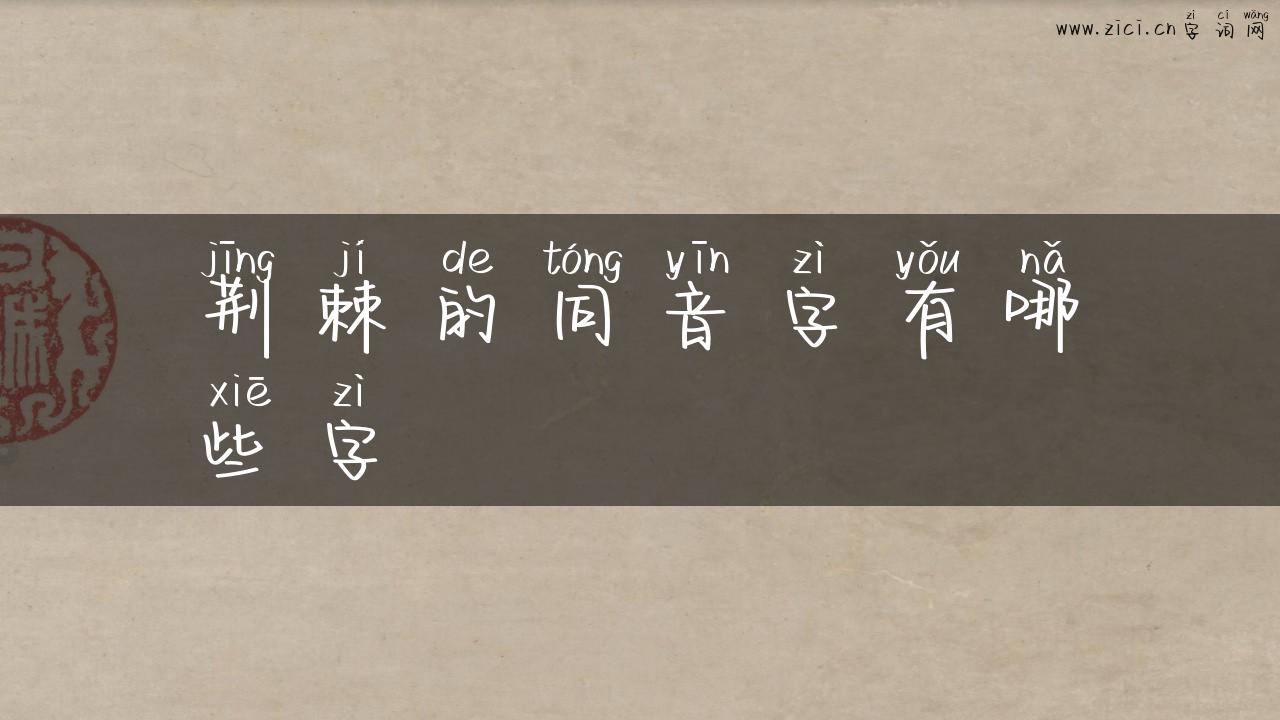 zì cí wǎng
www.zici.cn 字 词 网
jīng jí de tóng yīn zì yǒu nǎ
荆 棘 的 同 音 字 有 哪
xiē zì
些 字